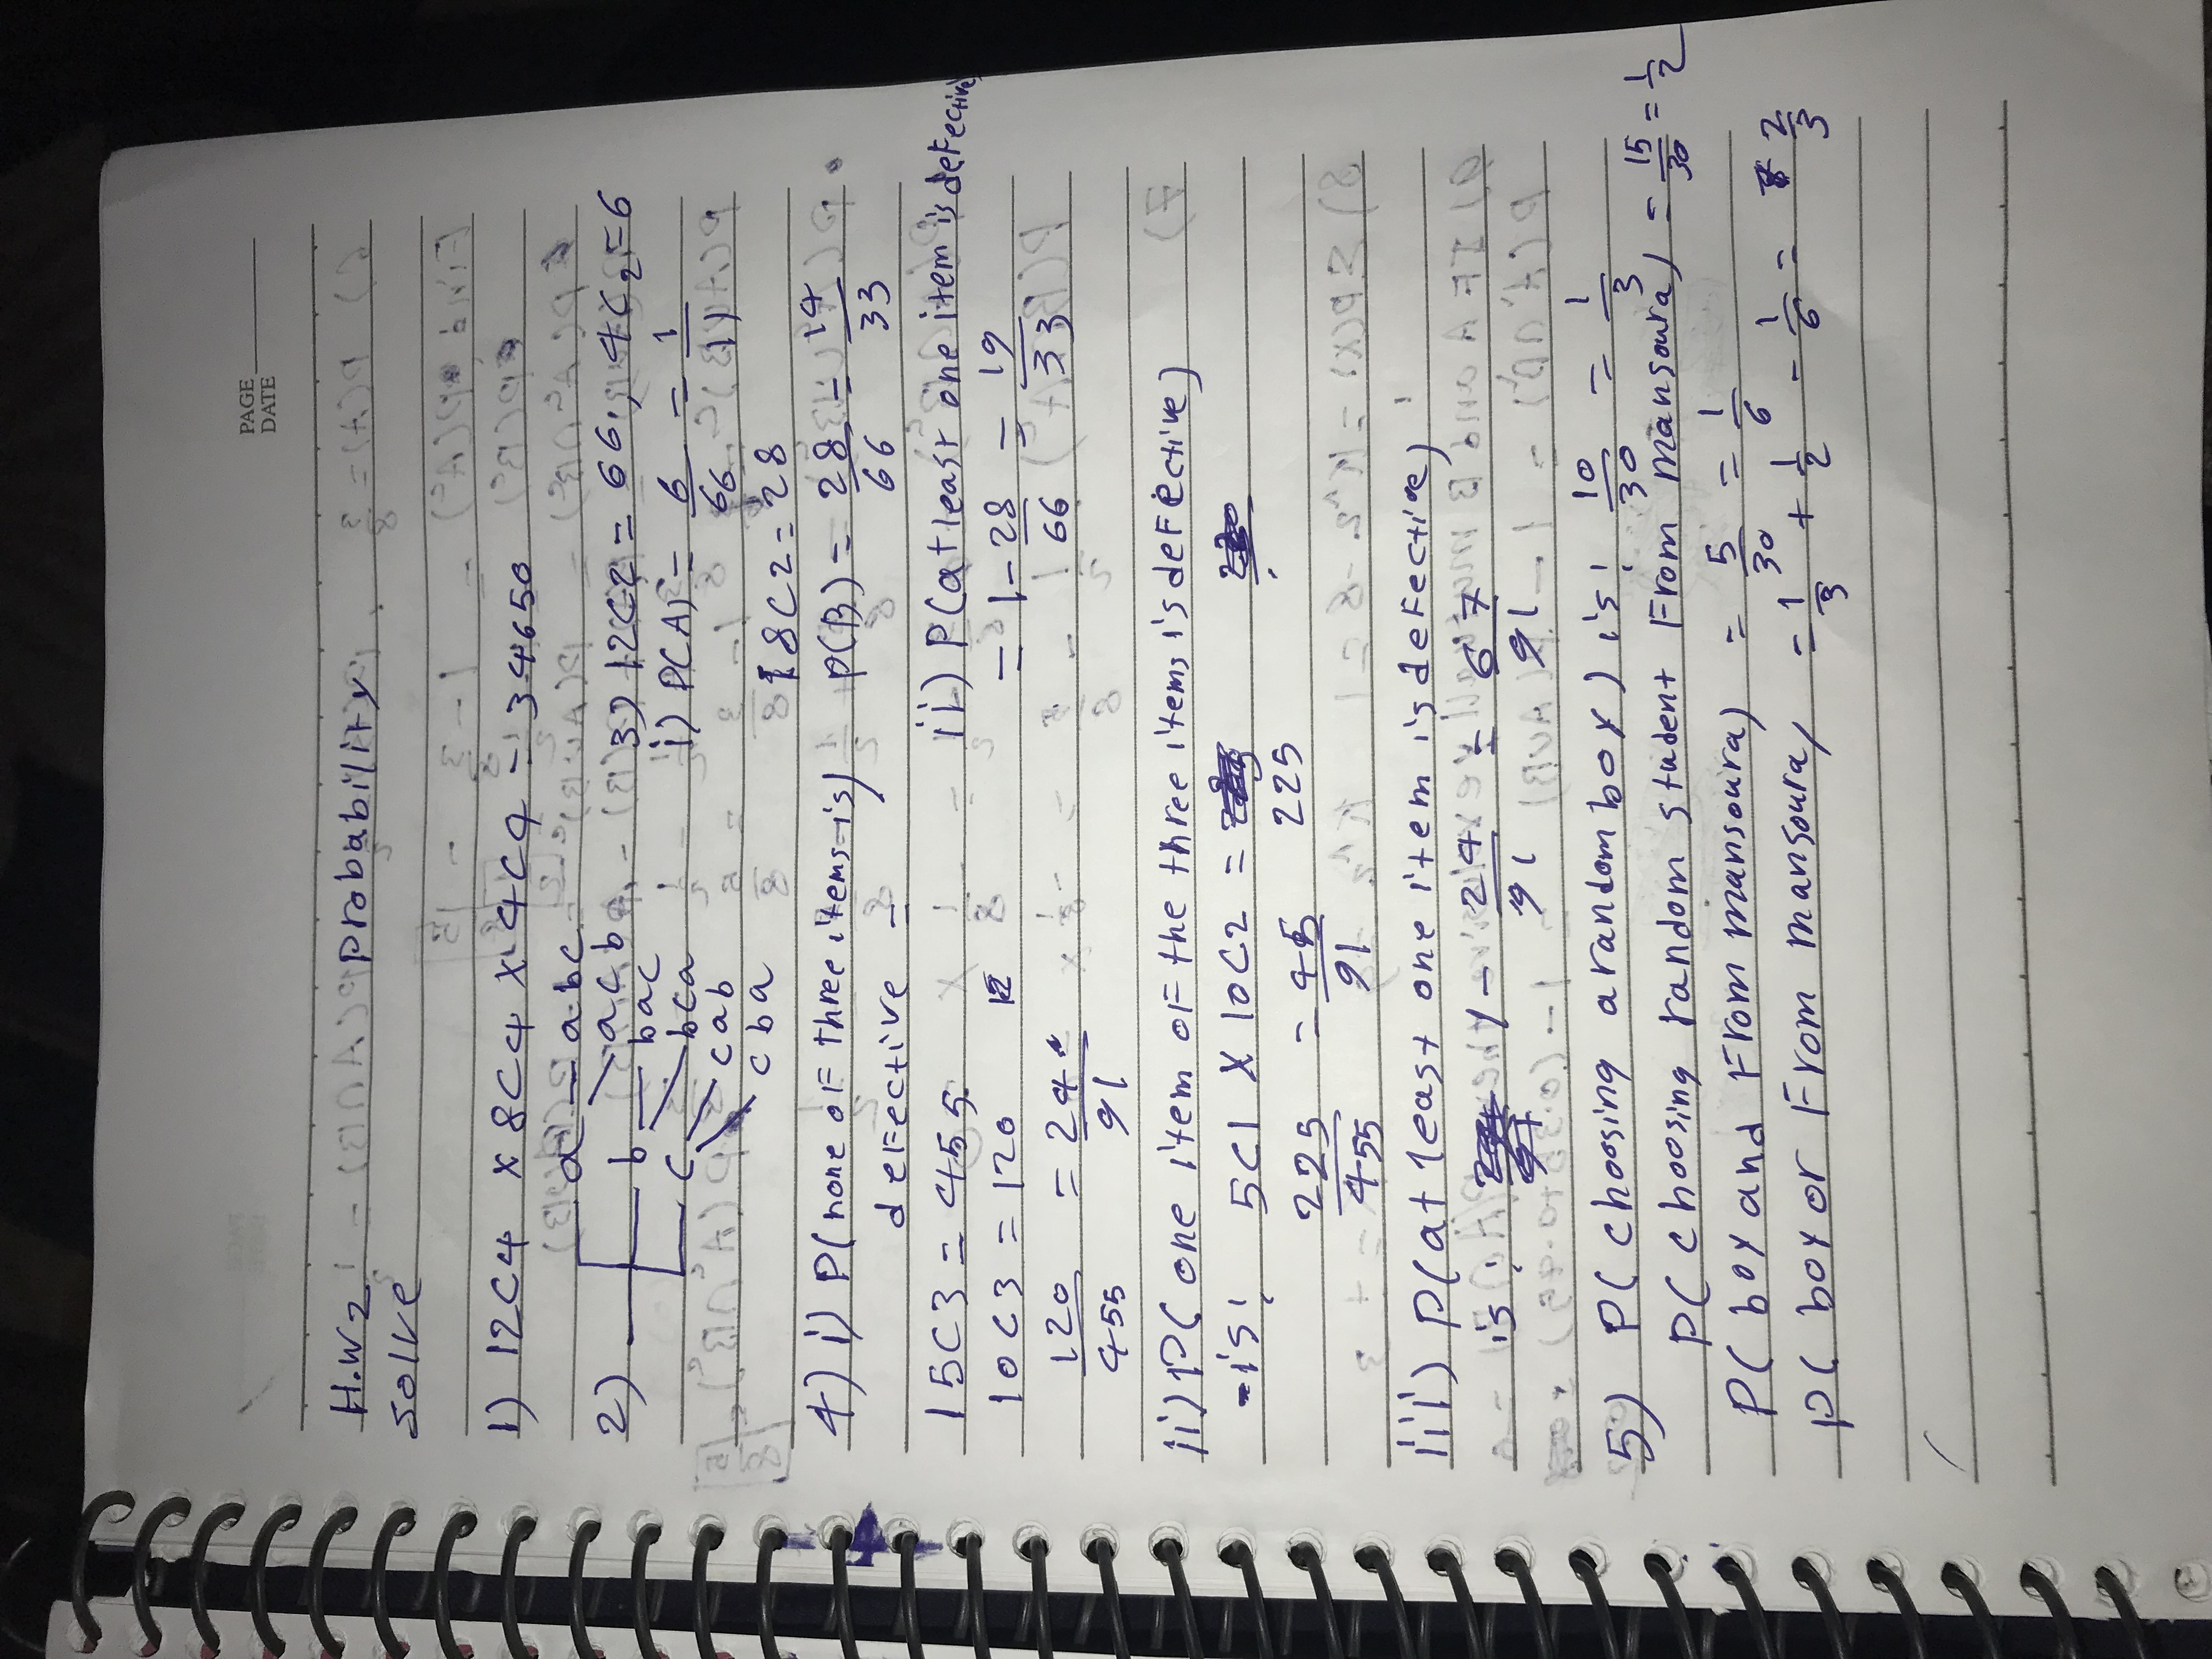 PAGE
DATE
H.W 2 Probability
solve
1) 12C4 X 8C4 X 4C4 = 34650
2) a — abc
acb
b — bac
bca
c cab
cba
3) 12C2 = 66, 4C2 = 6
i) P(A) = 6/66 = 1/11
8C2 = 28
P(B) = 28/66 = 14/33
ii) P(at least one item is defective)
= 1 - 28/66 = 19/33
4) i) P(none of three items is)
defective =
15C3 = 455
10C3 = 120
120/455 = 24/91
ii) P( one item of the three items is defective)
is: 5C1 X 10C2 =
225
225/455 = 45/91
iii) P(at least one item is defective)
is: 1 - 24/91 = 67/91
5) P( choosing a random boy) is: 10/30 = 1/3
P( choosing random student From mansoura) = 15/30 = 1/2
P( boy and From mansoura) = 5/30 = 1/6
P( boy or From mansoura) = 1/3 + 1/2 - 1/6 = 2/3